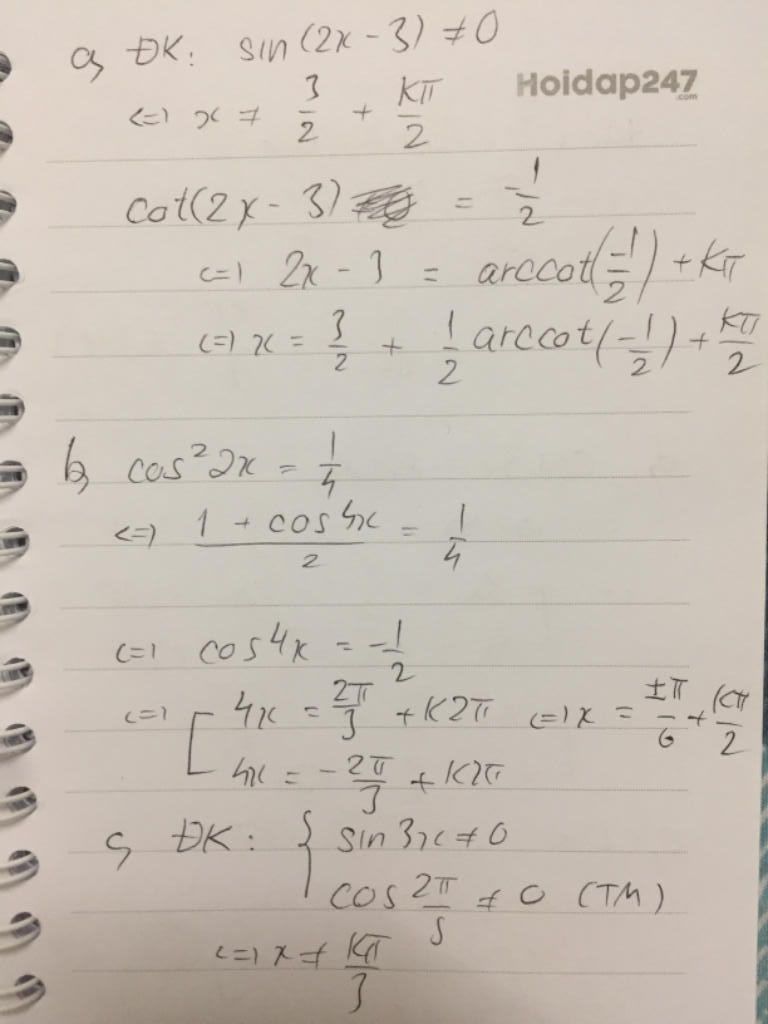 a, ĐK: sin(2x - 3) ≠ 0
Hoidap247
.com
<=> x ≠ 3/2 + kπ/2
cot(2x - 3) = -1/2
<=> 2x - 3 = arccot(-1/2) + kπ
<=> x = 3/2 + 1/2 arccot(-1/2) + kπ/2
b, cos²2x = 1/4
<=> (1 + cos4x)/2 = 1/4
<=> cos4x = -1/2
<=> [ 4x = 2π/3 + k2π <=> x = ±π/6 + kπ/2
4x = -2π/3 + k2π
c, ĐK: { sin3x ≠ 0
cos 2π/5 ≠ 0 (TM)
<=> x ≠ kπ/3